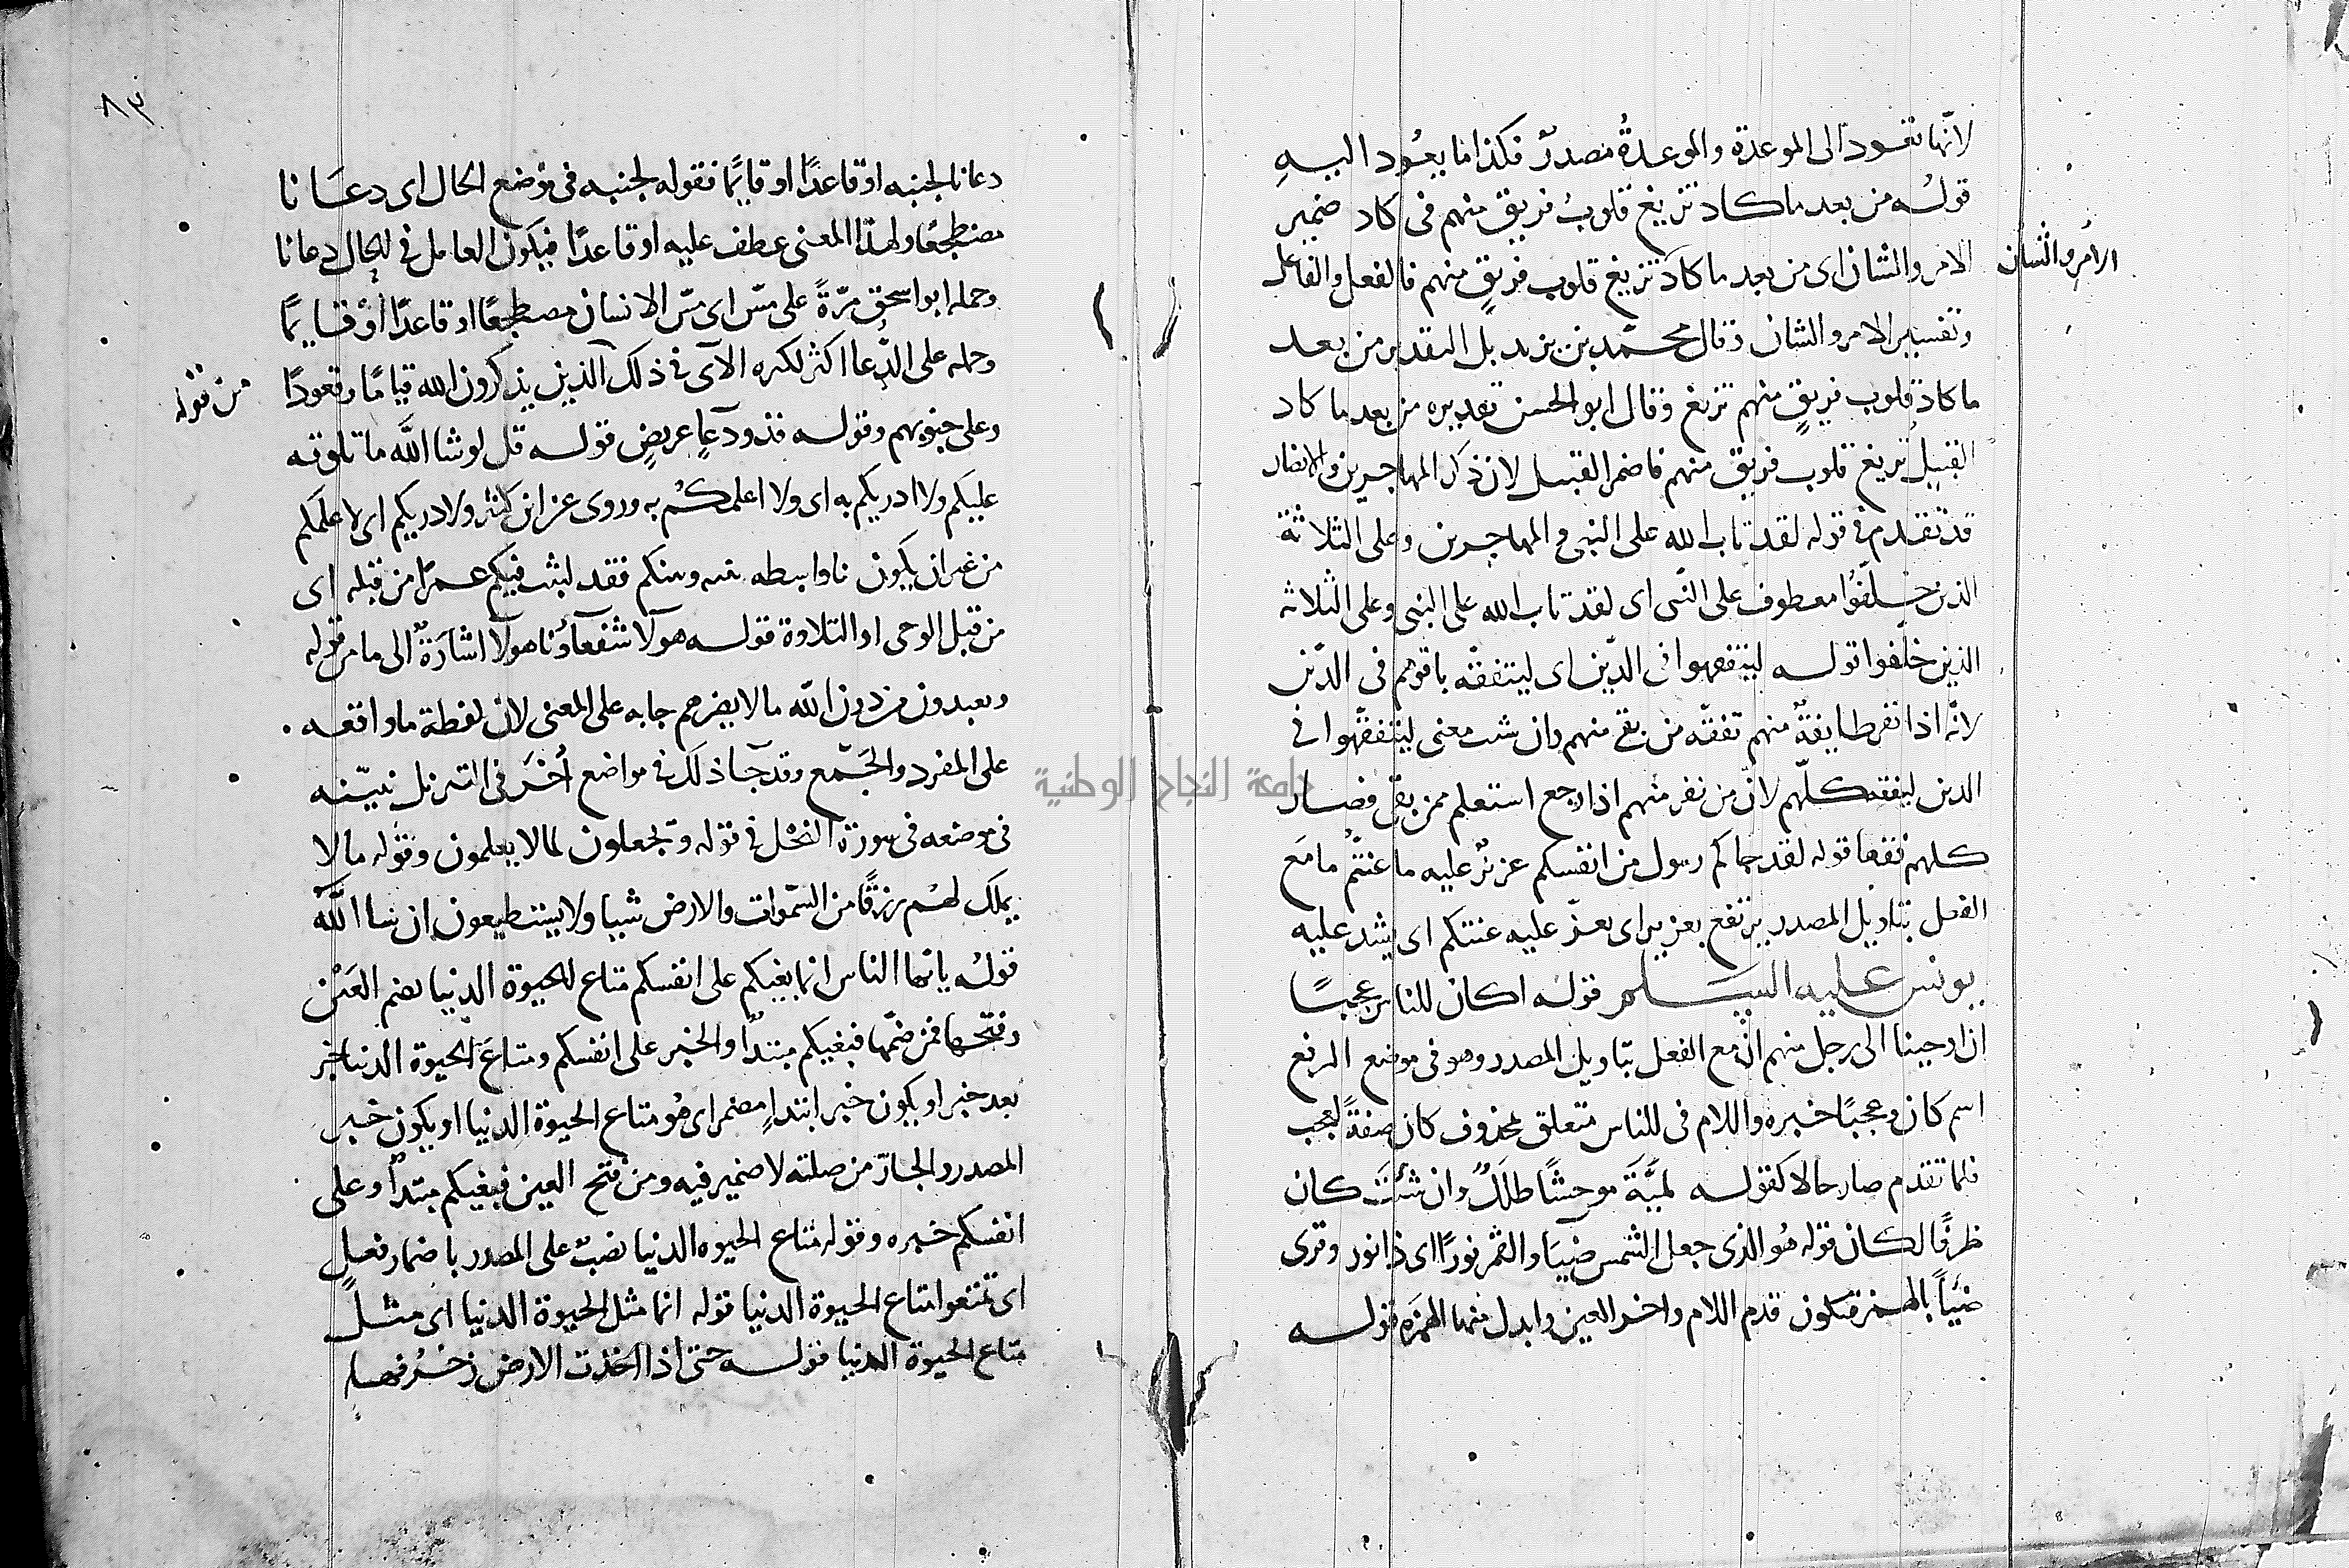 لانّها تعود الى الموعدة والموعدةُ مصدرٌ فكذا ما يعُود اليهِ
قولُه من بعد ما كاد تزيغ قلوبُ فريق منهم فى كاد ضمير
الامر والشان اى من بعد ما كاد تزيغ قلوب فريقٍ منهم فالفعل والفاعل
الأمر والشان
وتفسير الامر والشان وقال محمّد بن يزيد بل التقدير من بعد
ما كاد قلوب فريقٍ منهم تزيغ وقال ابو الحسن تقديره من بعد ما كاد
القبيل تزيغ قلوب فريق منهم فاضمر القبيل لان ذكر المهاجرين والانصار
قد تقدم فى قوله لقد تاب الله على النبى والمهاجرين وعلى الثلاثة
الذين خلّفُوا معطوف على النّبى اى لقد تاب الله على النبى وعلى الثلاثه
الذين خلّفوا قوله ليتفقهوا فى الدّين اى ليتفقّه باقوهم فى الدّين
لانّه اذا نفر طايفةٌ منهم تفقّه من بقى منهم وان شت معنى ليتفقّهوا فى
الدين ليفقه كلّهم لانّ من نفر منهم اذا رجع استعلم ممن بقى فصار
كلهم فقها قوله لقد جاكم رسول من انفسكم عزيزٌ عليه ما عنتّم ما مَع
الفعل بتاويل المصدر يرتفع بعزيز اى يعزّ عليه عنتكم اى يشد عليه
يونس عليه السلم قوله اكان للناس عجبًا
ان اوحينا الى رجل منهم ان مع الفعل بتاويل المصدر وهو فى موضع الرفع
اسم كان وعجبًا خبره واللام فى للناس متعلق بمحذوف كان صفةً لعجب
فلما تقدم صار حالا كقوله لميَّةَ موحشًا طلَلٌ وان شئتَ كان
ظرفًا لكان قوله هُو الذى جعل الشمس ضيآ والقمر نورًا اى ذا نور وقرى
ضئآً بالهمز فيكون قدم اللام واخر العين وابدل منها الهمزه قوله
٨٣
دعانا لجنبه او قاعدًا او قايمًا فقوله لجنبه فى موضع الحال اى دعَانا
مضطجعًا ولهذا المعنى عطف عليه او قاعدًا فيكون العامل فى الحال دعانا
وحمله ابو اسحق مرّةً على مسّ اى مسّ الانسان مضطجعًا او قاعدًا أوْ قايمًا
وحمله على الدّعا اكثر لكثره الآى فى ذلك الذين يذكرون الله قيامًا وقعودًا
من قوله
وعلى جنوبهم وقوله فذو دعآءٍ عريضٍ قوله قل لو شا اللَّه ما تلوته
عليكم ولا ادريكم به اى ولا اعلمكُم به وروى عن ابن كثير ولادريكم اى لاعلمكم
من غير ان يكون ناواسطه بينه وبينكم فقد لبثت فيكم عمرًا من قبله اى
من قبل الوحى او التلاوة قوله هولآ شفعآؤنا هولآ اشارةٌ الى ما من قوله
ويعبدون من دون اللّه ما لا يضرهم جا به على المعنى لان لفظة ما واقعه
على المفرد والجَمْع وقد جآ ذلك فى مواضع أُخَر فى التنزيل نبيّنه
فى موضعه فى سورة النحْل فى قوله ويجعلون لما لا يعلمون وقوله ما لا
يملك لهُم رزقًا من السّموات والارض شيا ولا يستطيعون ان شا اللَّه
قولُه يايّها الناس انما بغيكم على انفسكم متاع الحيوة الدنيا بضم العَيْن
وفتحها فمن ضمّها فبغيكم مبتدأ والخبر على انفسكم ومتاعَ الحيوة الدنيا خبر
بعد خبر او يكون خبر ابتداءٍ مضمر اى هُو متاع الحيوة الدنيا او يكون خبر
المصدر والجارّ من صلته لا ضمير فيه ومن فتح العين فبغيكم مبتدأ وعلى
انفسكم خبره وقوله متاع الحيوه الدنيا نصبٌ على المصدر باضمار فعلٍ
اى تمتعوا متاع الحيوة الدنيا قوله انما مثل الحيوة الدنيا اى مثل
متاع الحيوة الدنيا قوله حتى اذا اخذت الارض زخرُفها
جامعة النجاح الوطنية